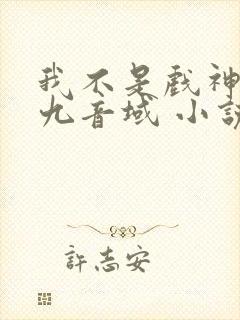 我不是戲神
九音域 小説
許志安